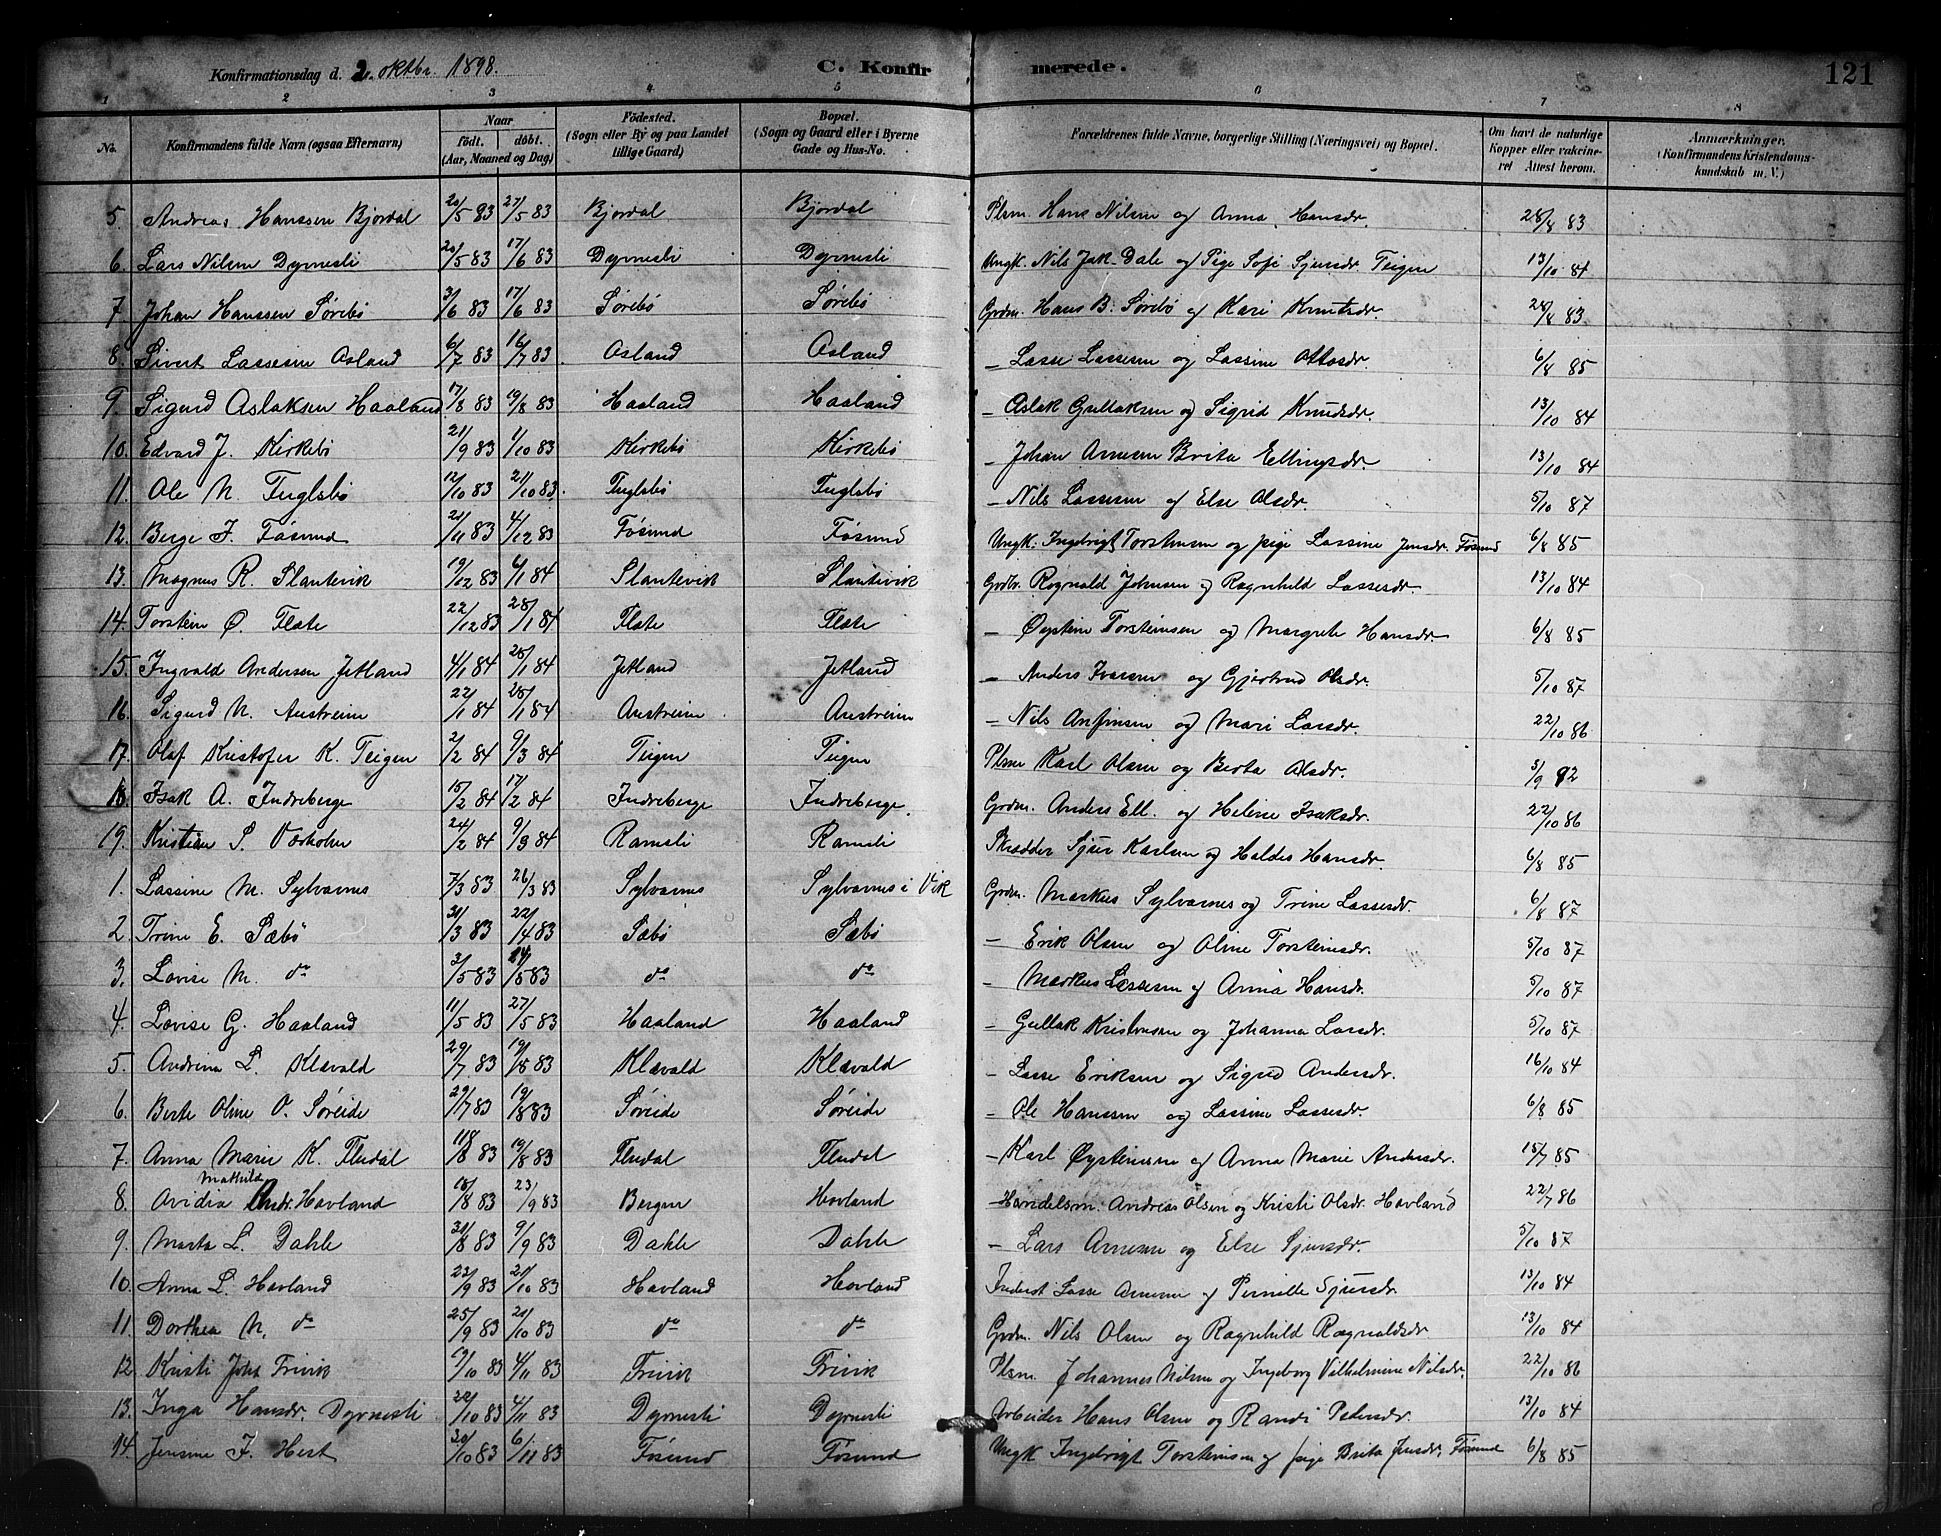 Konfirmationsdag d. 2. oktbr. 1898. C. Konfirmerede. 121
1 2 3 4 5 6 7 8
No. Konfirmandens fulde Navn (ogsaa Efternavn) Naar født. døbt. (Aar, Maaned og Dag) Fødested. (Sogn eller By og paa Landet tillige Gaard) Bopæl. (Sogn og Gaard eller i Byerne Gade og Hus-No. Forældrenes fulde Navne, borgerlige Stilling (Næringsvei) og Bopæl. Om havt de naturlige Kopper eller vakcineret Attest herom. Anmærkninger. (Konfirmandens Kristendomskundskab m. V.)
5. Andreas Hanssen Bjordal 20/5 83 27/5 83 Bjordal Bjordal Plsm. Hans Nilsen og Anna Hansdr. 28/8 83
6. Lars Nilsen Dyrnesli 20/5 83 17/6 83 Dyrnesli Dyrnesli Ungk. Nils Jak. Dale og Pige Sofi Sjursdr. Teigen 13/10 84
7. Johan Hanssen Sørebø 3/6 83 17/6 83 Sørebø Sørebø Grdm. Hans B. Sørebø og Kari Knutsdr. 28/8 83
8. Sivert Lassesen Asland 6/7 83 16/7 83 Asland Asland – Lasse Lassesen og Lassine Ottosdr. 6/8 85
9. Sigurd Aslaksen Haaland 17/8 83 19/8 83 Haaland Haaland – Aslak Gullaksen og Sigrid Knudsdr. 13/10 84
10. Edvard J. Kirkebø 21/9 83 1/10 83 Kirkebø Kirkebø – Johan Arnesen Brita Ellingsdr. 13/10 84
11. Ole N. Fuglsbø 12/10 83 21/10 83 Fuglsbø Fuglsbø – Nils Lassesen og Else Olsdr. 5/10 87
12. Berge I. Føsund 20/11 83 4/12 83 Føsund Føsund Ungk. Ingebrigt Torstensen og pige Lassine Jensdr. Føsund 6/8 85
13. Magnus R. Slantevik 19/12 83 6/1 84 Slantevik Slantevik Grdbr. Ragnald Johnsen og Ragnhild Lassesdr. 13/10 84
14. Torstein Ø. Flate 22/12 83 28/1 84 Flate Flate – Øystein Torsteinsen og Margrete Hansdr. 6/8 85
15. Ingvald Andersen Jetland 4/1 84 28/1 84 Jetland Jetland – Anders Ivarsen og Gjertrud Olsdr. 5/10 87
16. Sigurd N. Austreim 22/1 84 28/1 84 Austreim Austreim – Nils Anfinsen og Mari Larsdr. 22/10 86
17. Olaf Kristofer K. Teigen 2/2 84 9/3 84 Teigen Teigen Plsm Karl Olsen og Berta Olsdr. 5/9 92
18. Isak A. Indreberge 15/2 84 17/2 84 Indreberge Indreberge Grdm. Anders Ell. og Heline Isaksdr. 22/10 86
19. Kristian S. 24/2 84 9/3 84 Ramsli Ramsli Skrædder Sjur Karlsen og Haldis Hansdr. 6/8 85
1. Lassine M. Sylvarnes 7/3 83 26/3 83 Sylvarnes Sylvarnes i Vik Grdm. Markus Sylvarnes og Trine Lassesdr. 6/8 87
2. Trine E. Sæbø 31/3 83 22/4 83 Sæbø Sæbø – Erik Olsen og Oline Torsteinsdr. 5/10 87
3. Lovise M. do 3/5 83 14/5 83 do do – Markus Lassesen og Anna Hansdr. 5/10 87
4. Lovise G. Haaland 11/5 83 27/5 83 Haaland Haaland – Gullak Kristensen og Johanna Larsdr. 5/10 87
5. Andrina L. Klævald 29/7 83 19/8 83 Klævald Klævald – Lasse Eriksen og Sigrid Andersdr. 16/10 84
6. Berte Oline O. Søreide 29/7 83 19/8 83 Søreide Søreide – Ole Hanssen og Lassine Lassesdr. 6/8 85
7. Anna Marie K. Fludal 11/8 83 19/8 83 Fludal Fludal – Karl Øysteinsen og Anna Marie Andersdr. 15/7 85
8. Avidia Mathild Andr. Hovland 18/8 83 23/9 83 Bergen Hovland – Handelsm. Andreas Olsen og Kristi Olsdr. Hovland 22/7 86
9. Marta L. Dahle 31/8 83 9/9 83 Dahle Dahle – Lars Arnesen og Else Sjursdr. 5/10 87
10. Anna L. Hovland 23/9 83 21/10 83 Hovland Hovland Inderst Lasse Arnesen og Pernille Sjursdr 13/10 84
11. Dorthea N. do 25/9 83 21/10 83 do do Grdm. Nils Olsen og Ragnhild Ragnaldsdr. 13/10 84
12. Kristi Johs Frivik 19/10 83 4/11 83 Frivik Frivik Plsm. Johannes Nilsen og Ingeborg Vilhelmine Nilsdr. 22/10 86
13. Inga Hansdr. Dyrnesli 20/10 83 4/11 83 Dyrnesli Dyrnesli Arbeider Hans Olsen og Randi Pedersdr. 13/10 84
14. Jensine I. Hest 20/10 83 6/11 83 Føsund Føsund Ungk Ingebrigt Torsteinsen og pige Brita Jensdr. Føsund 6/8 85